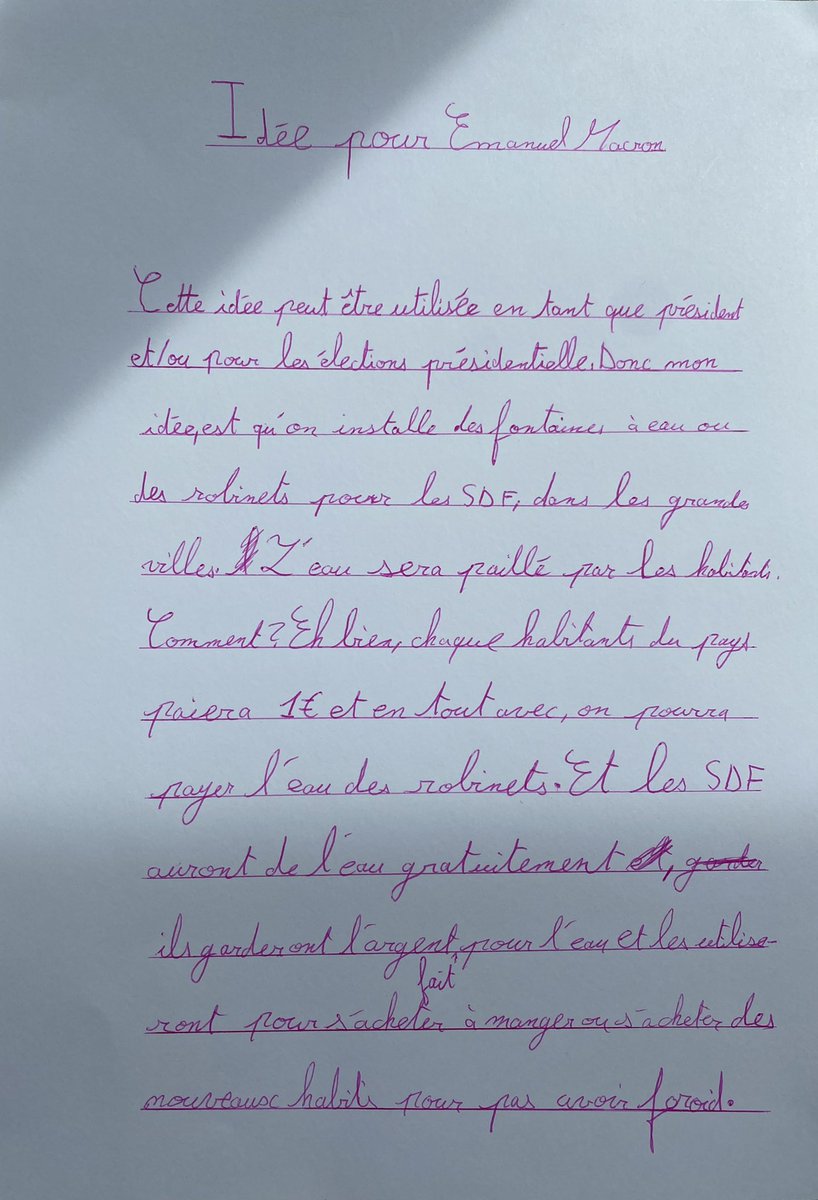 Idée pour Emanuel Macron
Cette idée peut être utilisée en tant que président
et/ou pour les élections présidentielle. Donc mon
idée, est qu'on installe des fontaines à eau ou
des robinets pour les SDF, dans les grandes
villes. L'eau sera paillé par les habitants.
Comment? Eh bien, chaque habitants du pays
paiera 1€ et en tout avec, on pourra
payer l'eau des robinets. Et les SDF
auront de l'eau gratuitement, garder
ils garderont l'argent, pour l'eau et les utilise-
fait
ront pour s'acheter à manger ou s'acheter des
nouveaux habits pour pas avoir froid.